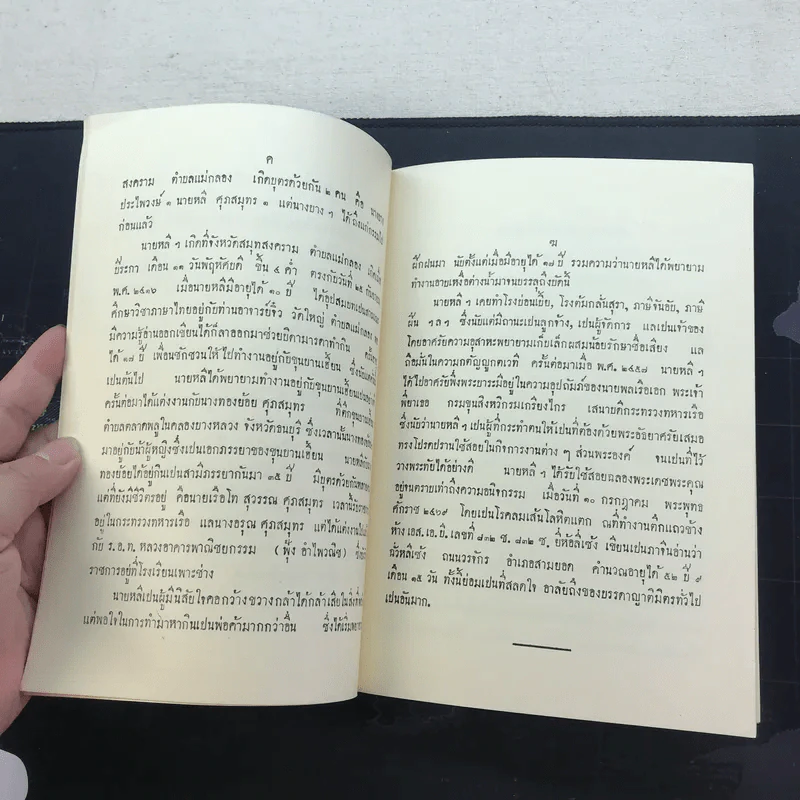 ค
สงคราม ตำบลแม่กลอง เกิดบุตร์ด้วยกัน ๒ คน คือ
ประไพวงษ์ ๑ นายหลี ศุภสมุทร ๑ แต่นางบาง ๆ ได้ถึงแก่กรรมไป
ก่อนแล้ว
นายหลี ๆ เกิดที่จังหวัดสมุทสงคราม ตำบลแม่กลอง เกิด
ปีระกา เดือน ๑๑ วันพฤหัศบดี ขึ้น ๔ ค่ำ ตรงกับวันที่ ๒๕
พ.ศ. ๒๔๑๖ เมื่อนายหลีมีอายุได้ ๑๐ ปี ได้อุปสมบท
ศึกษาวิชาภาษาไทยอยู่กับท่านอาจารย์จิ๋ว วัดใหญ่ ตำบลแม่กลอง
มีความรู้อ่านออกเขียนได้ก็ลาออกมาช่วยบิดามารดาทำกิน
ได้ ๑๗ ปี เพื่อนชักชวนให้ไปทำงานอยู่กับขุนยานเฮี้ยน ซึ่ง
เปนต้นไป นายหลีได้พยายามทำงานอยู่กับขุนยานเฮี้ยน
ครั้นต่อมาได้แต่งงานกับนางทองย้อย ศุภสมุทร ที่ตึกขุนยานเฮี้ยน
ตำบลตลาดพลูในคลองบางหลวง จังหวัดธนบุรี ซึ่งเวลานั้นนาง
มาอยู่กับน้าผู้หญิงซึ่งเปนเอกภรรยาของขุนยานเฮี้ยน นายหลีกับ
ทองย้อยได้อยู่กินเปนสามีภรรยากันมา ๓๕ ปี มีบุตร์ด้วยกัน
แต่ที่ยังมีชีวิตร์อยู่ คือนายเรือโท สุวรรณ ศุภสมุทร เวลานี้รับราชการ
อยู่ในกระทรวงทหารเรือ แลนางอรุณ ศุภสมุทร แต่ได้แต่งงานไป
กับ ร.อ.ท. หลวงอาคารพาณิชยกรรม (ฟุ้ง อำไพวณิช) ซึ่ง
ราชการอยู่ที่โรงเรียนเพาะช่าง
นายหลีเปนผู้มีนิสัยใจคอกว้างขวางกล้าได้กล้าเสียใน
แต่พอใจในการทำมาหากินเปนพ่อค้ามากกว่าอื่น ซึ่งได้เริ่ม
ฆ
ฝึกฝนมา นับตั้งแต่เมื่อมีอายุได้ ๑๗ ปี รวมความว่านายหลีได้พยายาม
ทำงานอายเหงื่อต่างน้ำมาจนบรรลุถึงบัดนี้
นายหลี ๆ เคยทำโรงบ่อนเบี้ย, โรงต้มกลั่นสุรา, ภาษีจันอับ, ภาษี
ฝิ่น ฯลฯ ซึ่งนับแต่มีถานะเปนลูกจ้าง, เปนผู้จัดการ แลเปนเจ้าของ
โดยอาศรัยความอุสาหะพยายามเก็บเล็กผสมน้อยรักษาชื่อเสียง แล
ถือมั่นในความกตัญญูกตเวที ครั้นต่อมาเมื่อ พ.ศ. ๒๔๕๗ นายหลี ๆ
ได้ไปอาศรัยพึ่งพระบารมีอยู่ในความอุปถัมภ์ของนายพลเรือเอก พระเจ้า
พี่ยาเธอ กรมขุนสิงหวิกรมเกรียงไกร เสนาบดีกระทรวงทหารเรือ
ซึ่งนับว่านายหลี ๆ เปนผู้ที่กระทำตนให้เปนที่ต้องด้วยพระอัธยาศรัยเสมอ
ทรงโปรดปรานใช้สอยในกิจการงานต่าง ๆ ส่วนพระองค์ จนเปนที่ไว้
วางพระทัยได้อย่างดี นายหลี ๆ ได้รับใช้สอยฉลองพระเดชพระคุณ
อยู่จนตราบเท่าถึงความอนิจกรรม เมื่อวันที่ ๑๐ กรกฎาคม พระพุทธ
ศักราช ๒๔๖๙ โดยเปนโรคลมเส้นโลหิตแตก ณที่ทำงานตึกแถวข้าง
ห้าง เอส. เอ. บี. เลขที่ ๘๓๒ ซ. ๘๓๒ ซ. ยี่ห้อลี้เซ้ง เขียนเปนภาจีนอ่านว่า
นั่วหลีเซ้ง ถนนวรจักร์ อำเภอสามยอด คำนวณอายุได้ ๕๒ ปี ๙
เดือน ๑๕ วัน ทั้งนี้ย่อมเปนที่สลดใจ อาลัยถึงของบรรดาญาติมิตรทั่วไป
เปนอันมาก.